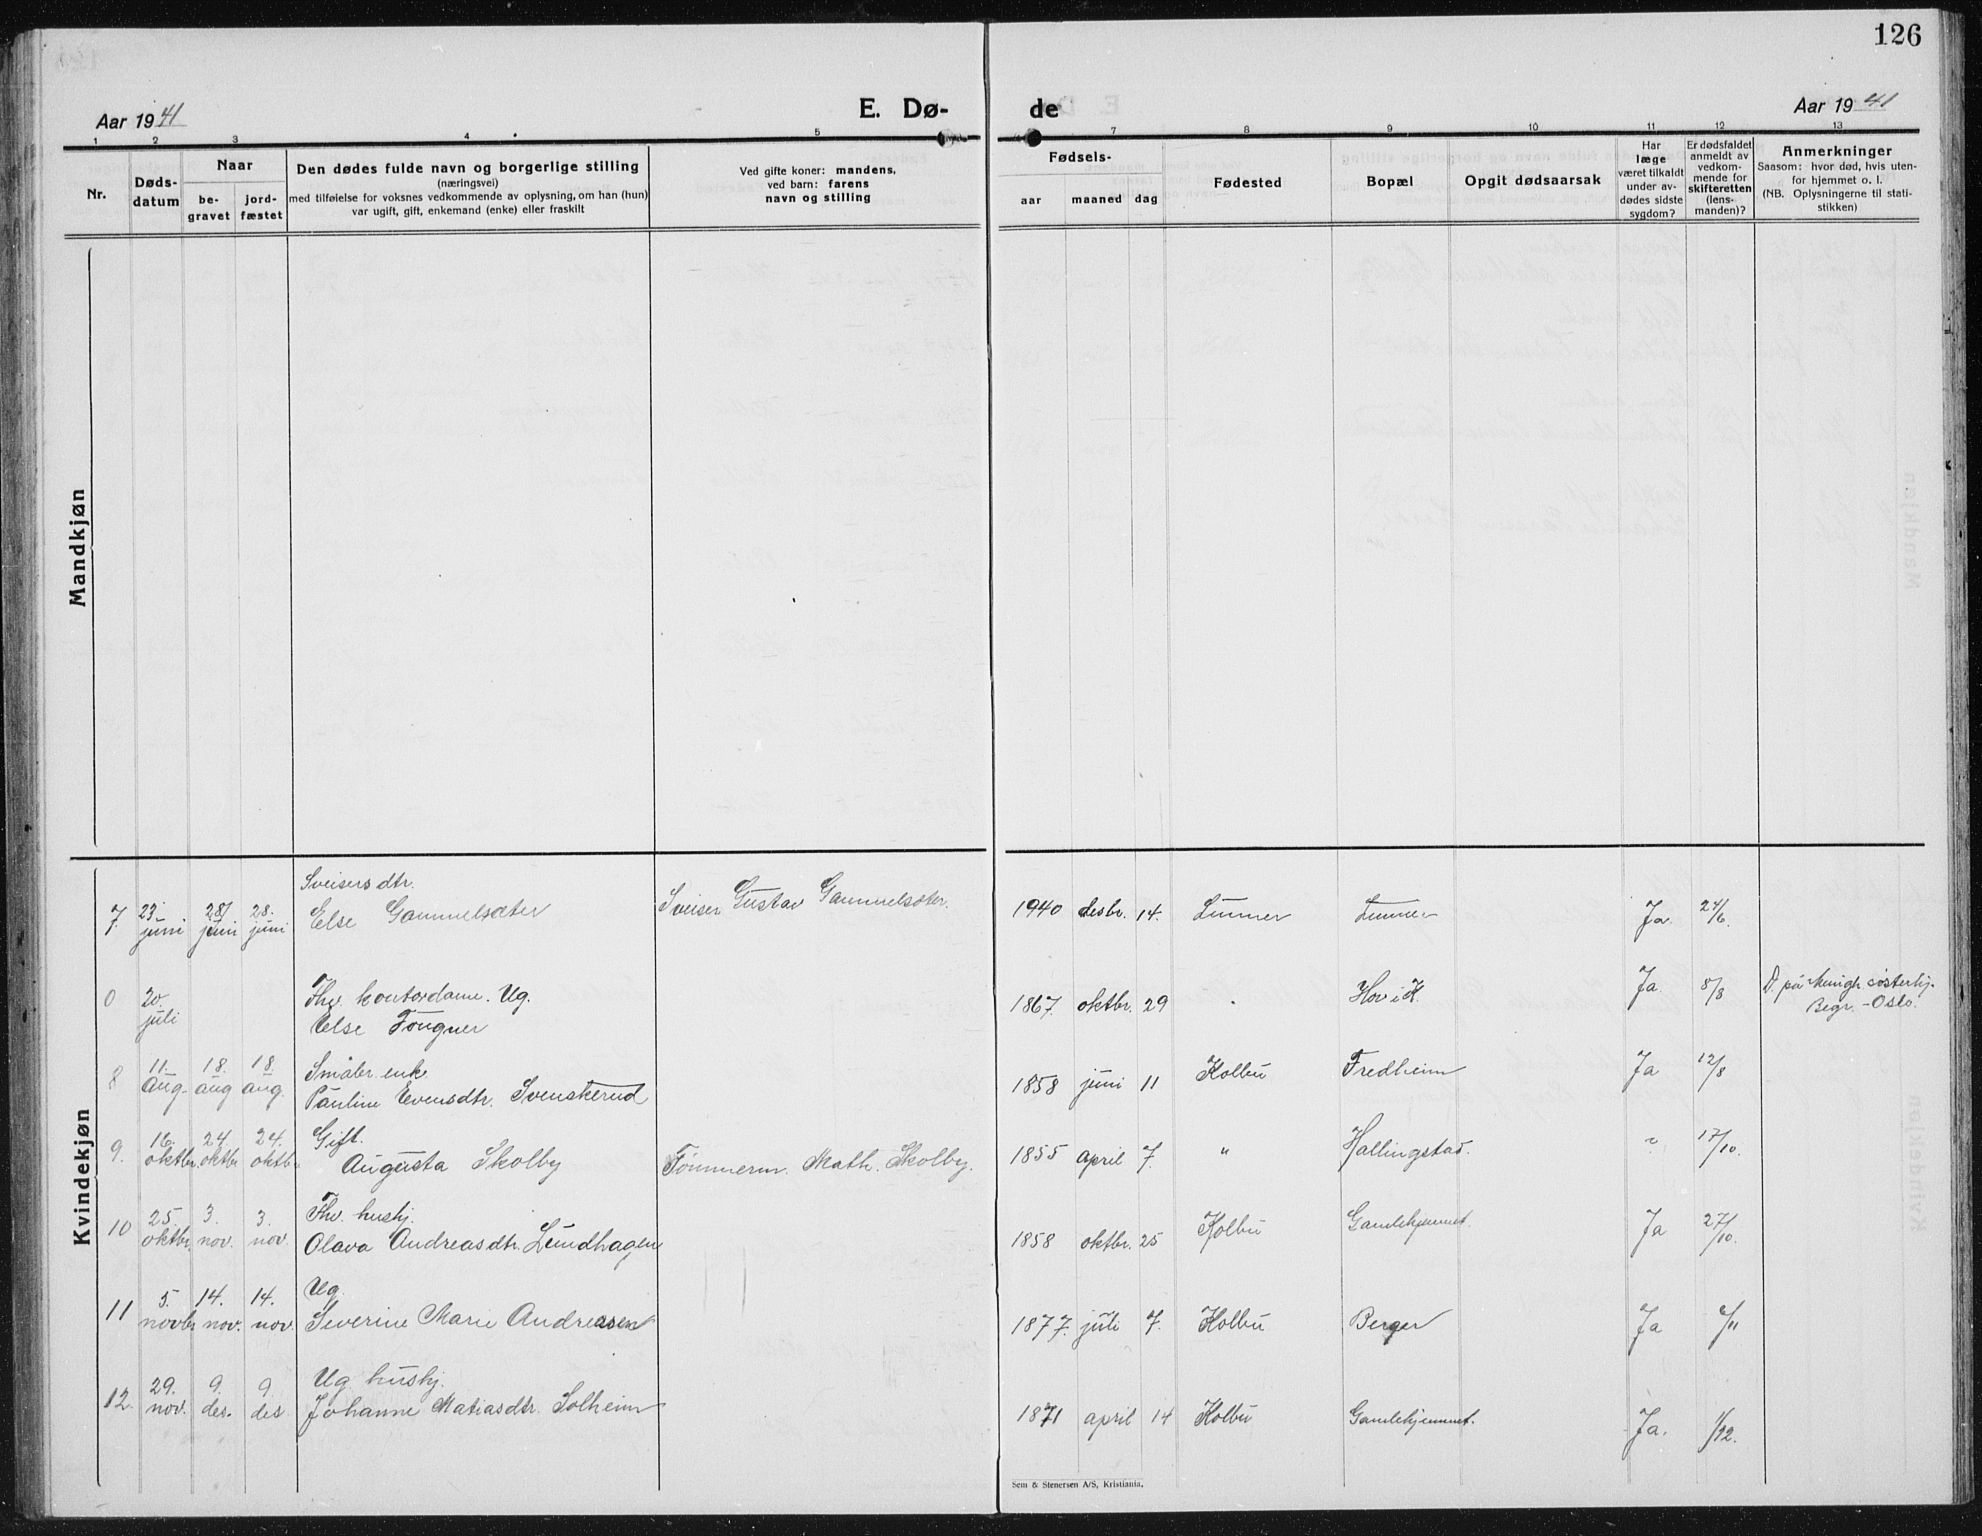 126
Aar 1941
E. Dø-
de
Aar 1941
1 2 3 4 5
7 8 9 10 11 12 13
Nr.
Døds-
datum
Naar
be-
gravet
jord-
fæstet
Den dødes fulde navn og borgerlige stilling
(næringsvei)
med tilføielse for voksnes vedkommende av oplysning, om han (hun)
var ugift, gift, enkemand (enke) eller fraskilt
Ved gifte koner: mandens,
ved barn: farens
navn og stilling
Fødsels-
aar maaned dag
Fødested
Bopæl
Opgit dødsaarsak
Har
læge
været tilkaldt
under av-
dødes sidste
sygdom?
Er dødsfaldet
anmeldt av
vedkom-
mende for
skifteretten
(lens-
manden)?
Anmerkninger
Saasom: hvor død, hvis uten-
for hjemmet o. l.
(NB. Oplysningerne til stati-
stikken)
Mandkjøn
Kvindekjøn
Sveisers dtr.
7. 23. juni 28/ juni 28. juni Else Gammelsæter Sveiser Gustav Gammelsæter. 1940 desbr. 14. Lunner Lunner Ja. 24/6.
Fhv. kontordame. Ug.
0 20. juli Else Fougner 1867 oktbr. 29 Hov i H. Ja 8/8 D. på Menigh. søsterhj.
Begr. - Oslo.
Småbr. enke
8 11. aug. 18. aug 18. aug. Pauline Evensdtr. Svenskerud 1858 juni 11 Kolbu Fredheim Ja 12/8
Gift.
9. 16. oktbr. 24. oktbr 24. oktbr Augusta Skolby Tømmerm. Math. Skolby. 1855 april 7. " Hallingstad. ? 17/10.
Fhv. hushj.
10 25. oktbr. 3. nov. 3. nov. Olava Andreasdtr. Lundhagen 1858 oktbr. 25 Kolbu Gamlehjemmet. Ja 27/10.
Ug.
11 5. novbr 14. nov. 14. nov. Severine Marie Andreasen 1877. juli 7. Kolbu Berger Ja /11
Ug hushj.
12. 29. nov. 9. des. 9. des Johanne Matiasdtr. Solheim 1871 april 14 Kolbu Gamlehjemmet. Ja. 1/12.
Sem & Stenersen A/S, Kristiania.